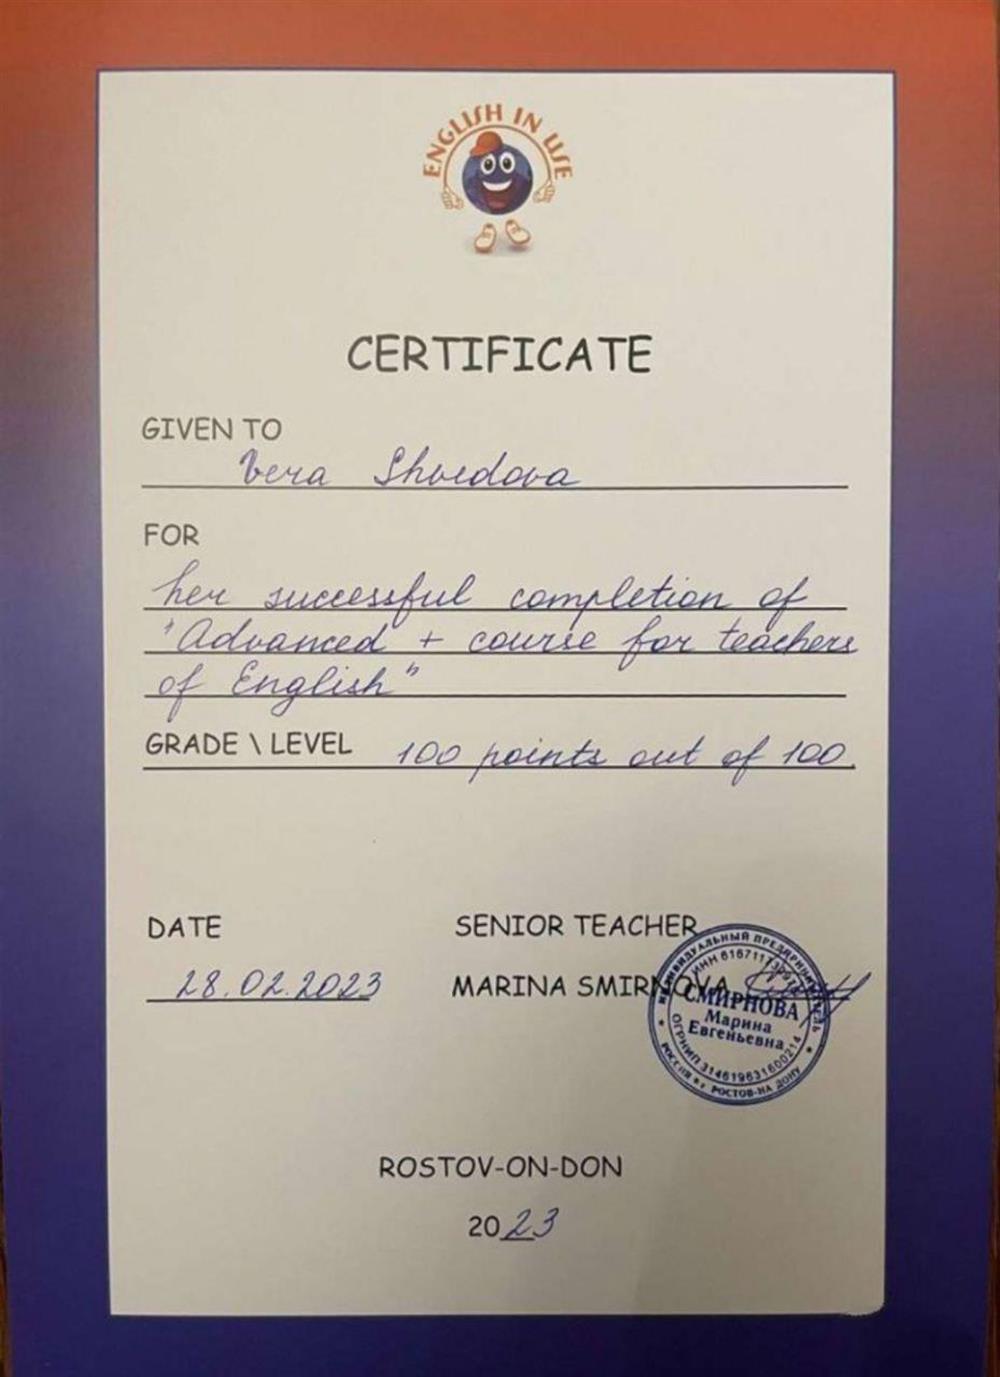 ENGLISH IN USE
CERTIFICATE
GIVEN TO
Vera Shvedova
FOR
her successful completion of
"Advanced + course for teachers
of English"
GRADE \ LEVEL 100 points out of 100.
DATE
SENIOR TEACHER
28.02.2023
MARINA SMIRNOVA
ИНДИВИДУАЛЬНЫЙ ПРЕДПРИНИМАТЕЛЬ
ИНН
СМИРНОВА
Марина
Евгеньевна
ОГРНИП 314619631600214
РОССИЯ г. РОСТОВ-НА ДОНУ
ROSTOV-ON-DON
2023